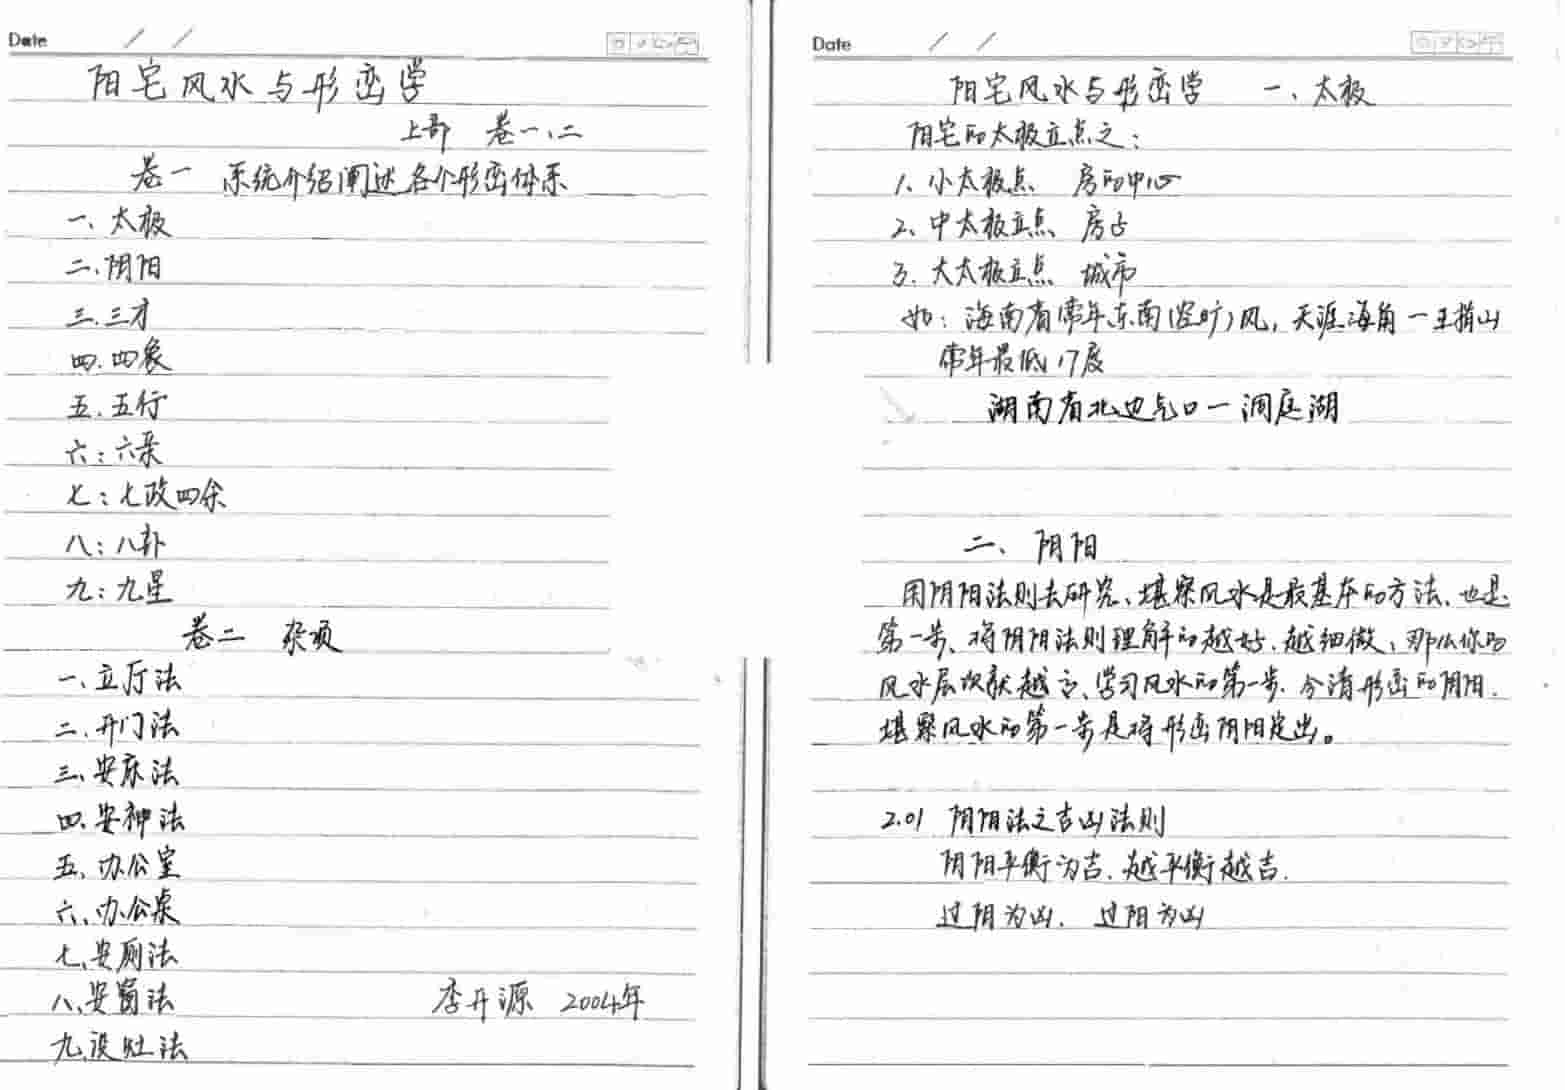 Date / /
阳宅风水与形峦学
上部 卷一、二
卷一 系统介绍阐述各个形峦体系
一、太极
二、阴阳
三、三才
四、四象
五、五行
六：六亲
七：七政四余
八：八卦
九：九星
卷二 杂项
一、立厅法
二、开门法
三、安床法
四、安神法
五、办公室
六、办公桌
七、安厕法
八、安窗法
李开源 2004年
九、设灶法
Date / /
阳宅风水与形峦学 一、太极
阳宅的太极立点之：
1、小太极点 房的中心
2、中太极立点 房占
3、大太极立点 城市
如：海南省常年东南(空旷)风，天涯海角－五指山
常年最低17度
湖南省北边气口－洞庭湖
二、阴阳
用阴阳法则去研究、堪察风水是最基本的方法、也是
第一步、将阴阳法则理解的越好、越细微，那么你的
风水层次就越高、学习风水的第一步，分清形峦的阴阳.
堪察风水的第一步是将形峦阴阳定出。
2.01 阴阳法之吉凶法则
阴阳平衡为吉.越平衡越吉.
过阴为凶. 过阳为凶